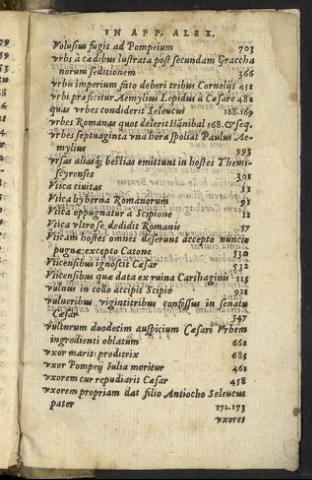 IN APP. ALEX.
Volusius fugit ad Pompeium 703
vrbs à cædibus lustrata post secundam Graccha
norum seditionem 366
vrbis imperium fato deberi tribus Cornelijs 451
vrbi præficitur Aemylius Lepidus à Cæsare 482
quas vrbes condiderit Seleucus 168.169
vrbes Romanas quot delerit Hānibal 168. & seq.
vrbes septuaginta vna hora spoliat Paulus Ae-
mylius 993
vrsus aliasq; bestias emittunt in hostes Themi-
scyrenses 301
Vtica ciuitas 11
Vtica hyberna Romanorum 91
Vtica oppugnatur à Scipione 12
Vtica vltro se dedidit Romanis 57
Vticam hostes omnes deserunt accepto nuncio
pugnæ: excepto Catone 530
Vticensibus ignoscit Cæsar 532
Vticensibus quæ data ex ruina Carthaginis 115
vulnus in collo accipit Scipio 921
vulneribus vigintitribus confossus in senatu
Cæsar 547
vulturum duodecim auspicium Cæsari Vrbem
ingredienti oblatum 662
vxor mariti proditrix 685
vxor Pompeij Iulia moritur 461
vxorem cur repudiarit Cæsar 458
vxorem propriam dat filio Antiocho Seleucus
pater 172.173
vxores